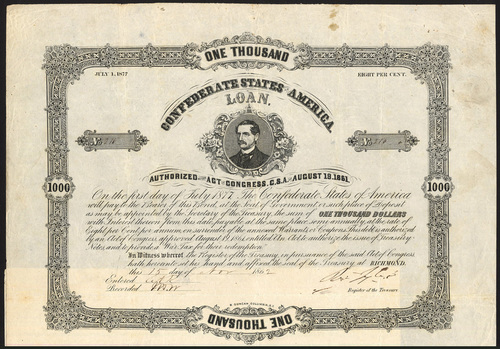 ONE THOUSAND
JULY 1, 1877
EIGHT PER CENT.
CONFEDERATE STATES AMERICA
LOAN.
AUTHORIZED ACT CONGRESS, C.S.A. AUGUST 19, 1861.
On the first day of July 1877 The Confederate States of America
will pay to the Bearer of this Bond, at the Seat of Government or such place of Deposit
as may be appointed by the Secretary of the Treasury, the sum of ONE THOUSAND DOLLARS
with Interest thereon from this date, payable at the same place, semi annually, at the rate of
Eight per Cent per annum, on surrender of the annexed Warrants or Coupons. This debt is authorized
by an Act of Congress approved August 19, 1861, entitled An Act to authorize the issue of Treasury
Notes and to provide a War Tax for their redemption.
In Witness whereof, the Register of the Treasury, in pursuance of the said Act of Congress
hath hereunto set his hand, and affixed the seal of the Treasury at RICHMOND,
this 15 day of 1862
Entered
Recorded
Register of the Treasury
1000
1000
ONE THOUSAND